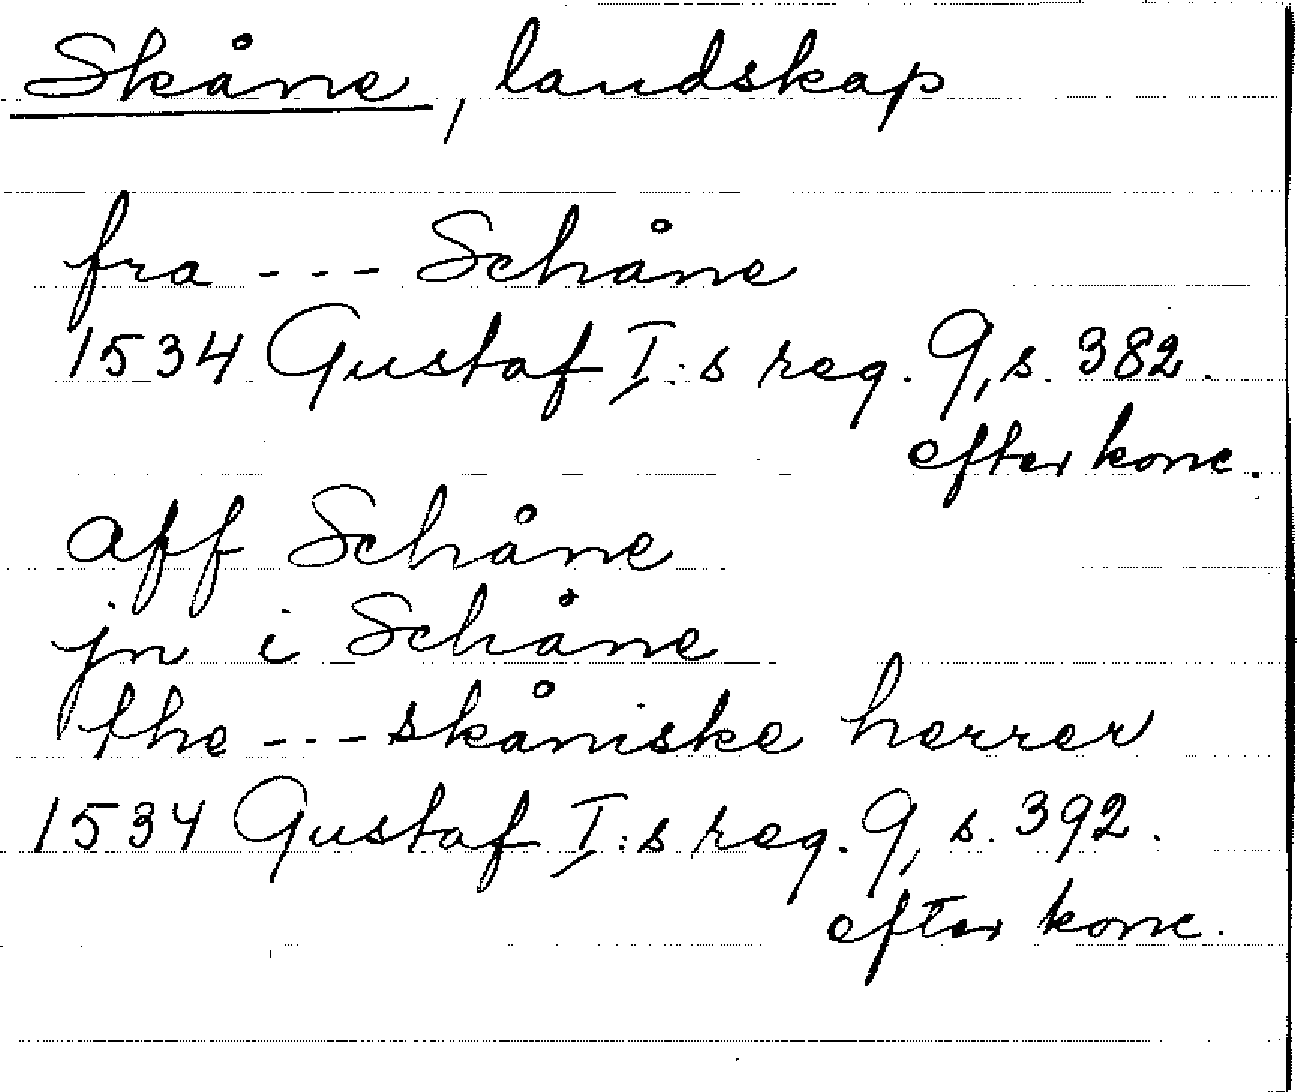 Skåne, landskap
fra --- Schåne
1534 Gustaf I:s reg. 9, s. 382.
efter konc.
aff Schåne
jn i Schåne
the --- skåniske herrer
1534 Gustaf I:s reg. 9, s. 392.
efter konc.